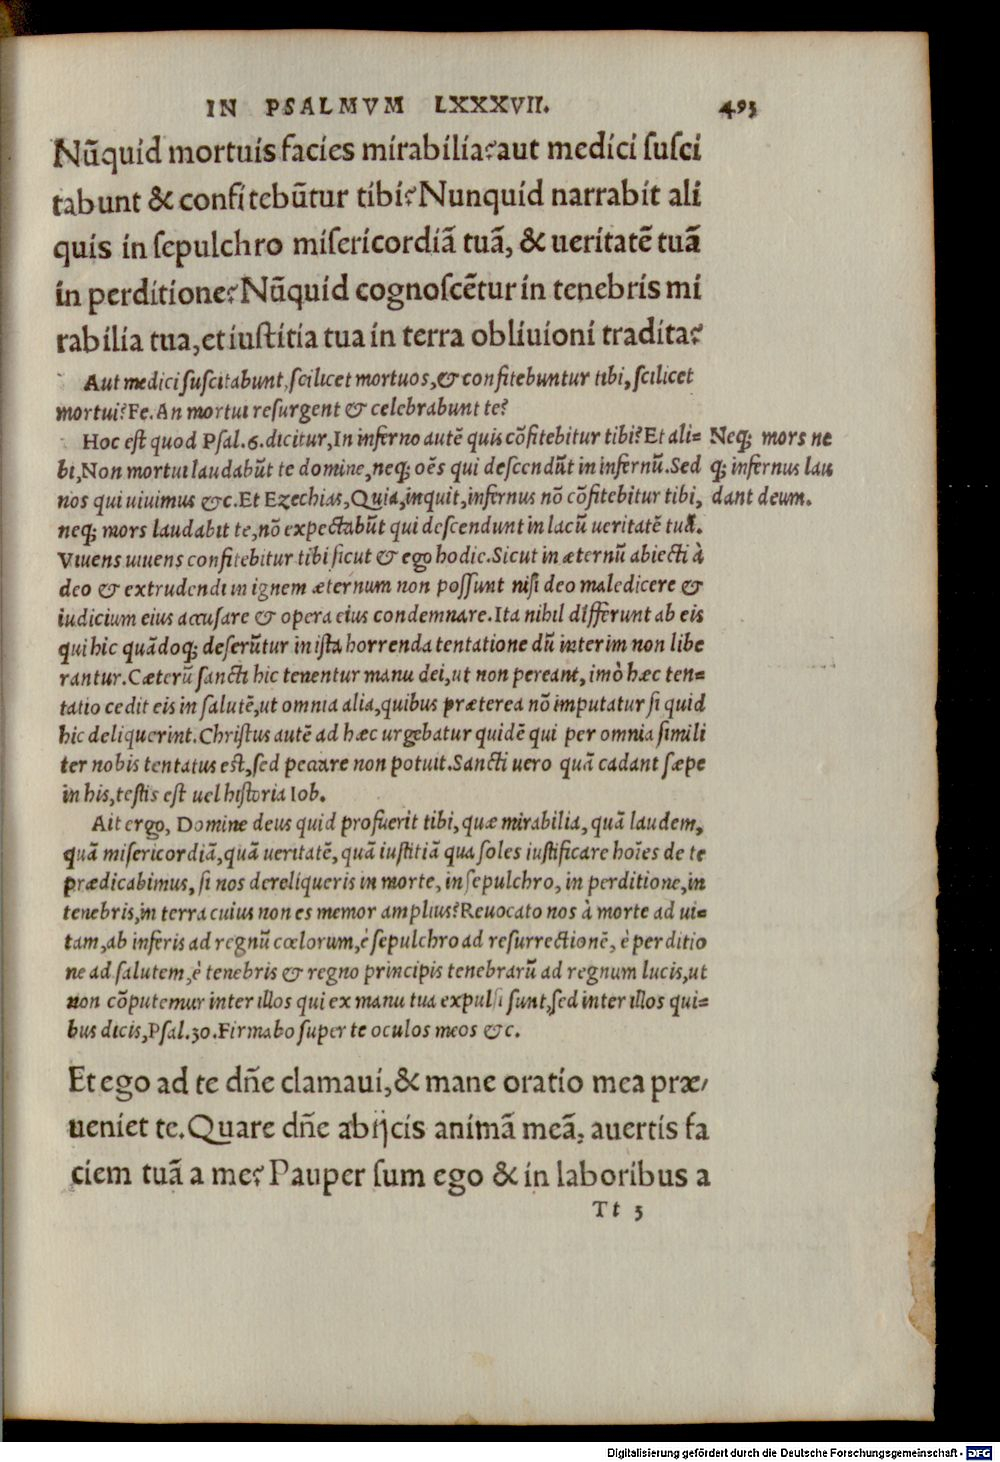 IN PSALMVM LXXXVII. 493
Nũquid mortuis facies mirabilia? aut medici ſuſci
tabunt & confitebũtur tibi? Nunquid narrabit ali
quis in ſepulchro miſericordiã tuã, & ueritatẽ tuã
in perditione? Nũquid cognoſcẽtur in tenebris mi
rabilia tua, et iuſtitia tua in terra obliuioni tradita?
Aut medici ſuſcitabunt, ſcilicet mortuos, & confitebuntur tibi, ſcilicet
mortui? Fe. An mortui reſurgent & celebrabunt te?
Hoc eſt quod Pſal. 6. dicitur, In inferno autẽ quis cõfitebitur tibi? Et ali=
bi, Non mortui laudabũt te domine, neq; oẽs qui deſcendũt in infernũ. Sed
nos qui uiuimus &c. Et Ezechias, Quia, inquit, infernus nõ cõfitebitur tibi,
neq; mors laudabit te, nõ expectabũt qui deſcendunt in lacũ ueritatẽ tuã.
Viuens uiuens confitebitur tibi ſicut & ego hodie. Sicut in æternũ abiecti à
deo & extrudendi in ignem æternum non poſſunt niſi deo maledicere &
iudicium eius accuſare & opera eius condemnare. Ita nihil differunt ab eis
qui hic quãdoq; deſerũtur in iſta horrenda tentatione dũ interim non libe
rantur. Cæterũ ſancti hic tenentur manu dei, ut non pereant, imò hæc ten=
tatio cedit eis in ſalutẽ, ut omnia alia, quibus præterea nõ imputatur ſi quid
hic deliquerint. Chriſtus autẽ ad hæc urgebatur quidẽ qui per omnia ſimili
ter nobis tentatus eſt, ſed peccare non potuit. Sancti uero quã cadant ſæpe
in his, teſtis eſt uel hiſtoria Iob.
Neq; mors ne
q; infernus lau
dant deum.
Ait ergo, Domine deus quid profuerit tibi, quæ mirabilia, quã laudem,
quã miſericordiã, quã ueritatẽ, quã iuſtitiã qua ſoles iuſtificare hoĩes de te
prædicabimus, ſi nos dereliqueris in morte, in ſepulchro, in perditione, in
tenebris, in terra cuius non es memor amplius? Reuocato nos à morte ad ui=
tam, ab inferis ad regnũ cœlorum, è ſepulchro ad reſurrectionẽ, è perditio
ne ad ſalutem, è tenebris & regno principis tenebrarũ ad regnum lucis, ut
non cõputemur inter illos qui ex manu tua expulſi ſunt, ſed inter illos qui=
bus dicis, Pſal. 30. Firmabo ſuper te oculos meos &c.
Et ego ad te dñe clamaui, & mane oratio mea præ/
ueniet te. Quare dñe abijcis animã meã, auertis fa
ciem tuã a me? Pauper ſum ego & in laboribus a
Tt 3
Digitalisierung gefördert durch die Deutsche Forschungsgemeinschaft - DFG